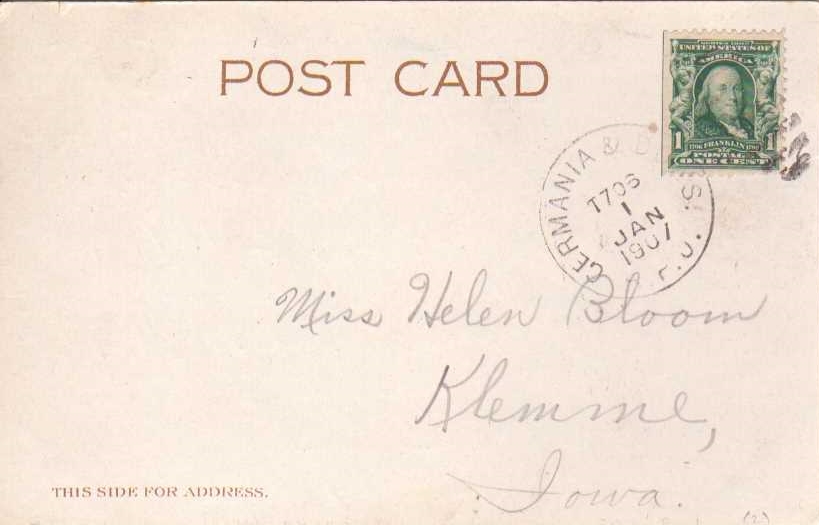 POST CARD
UNITED STATES OF
AMERICA
1 1
FRANKLIN
POSTAGE
ONE CENT
GERMANIA &
T706
1
JAN
1907
Miss Helen Bloom
Klemme,
Iowa.
THIS SIDE FOR ADDRESS.
(2)